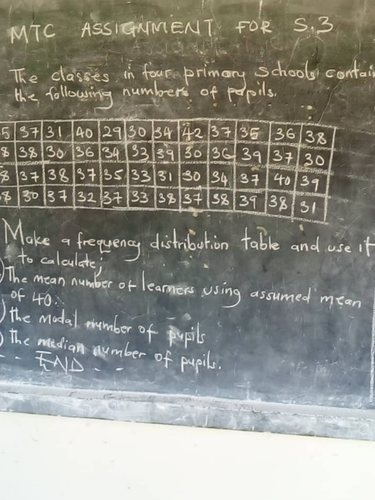 MTC ASSIGNMENT FOR S.3
The classes in four primary schools contain
the following numbers of pupils.
5 37 31 40 29 30 34 42 37 35 36 38
8 38 30 36 34 33 39 30 36 39 37 30
8 37 38 37 35 33 31 30 34 37 40 39
8 30 37 32 37 33 38 37 38 39 38 31
Make a frequency distribution table and use it
to calculate;
) The mean number of learners using assumed mean
of 40.
) the modal number of pupils
) the median number of pupils.
.. END ..